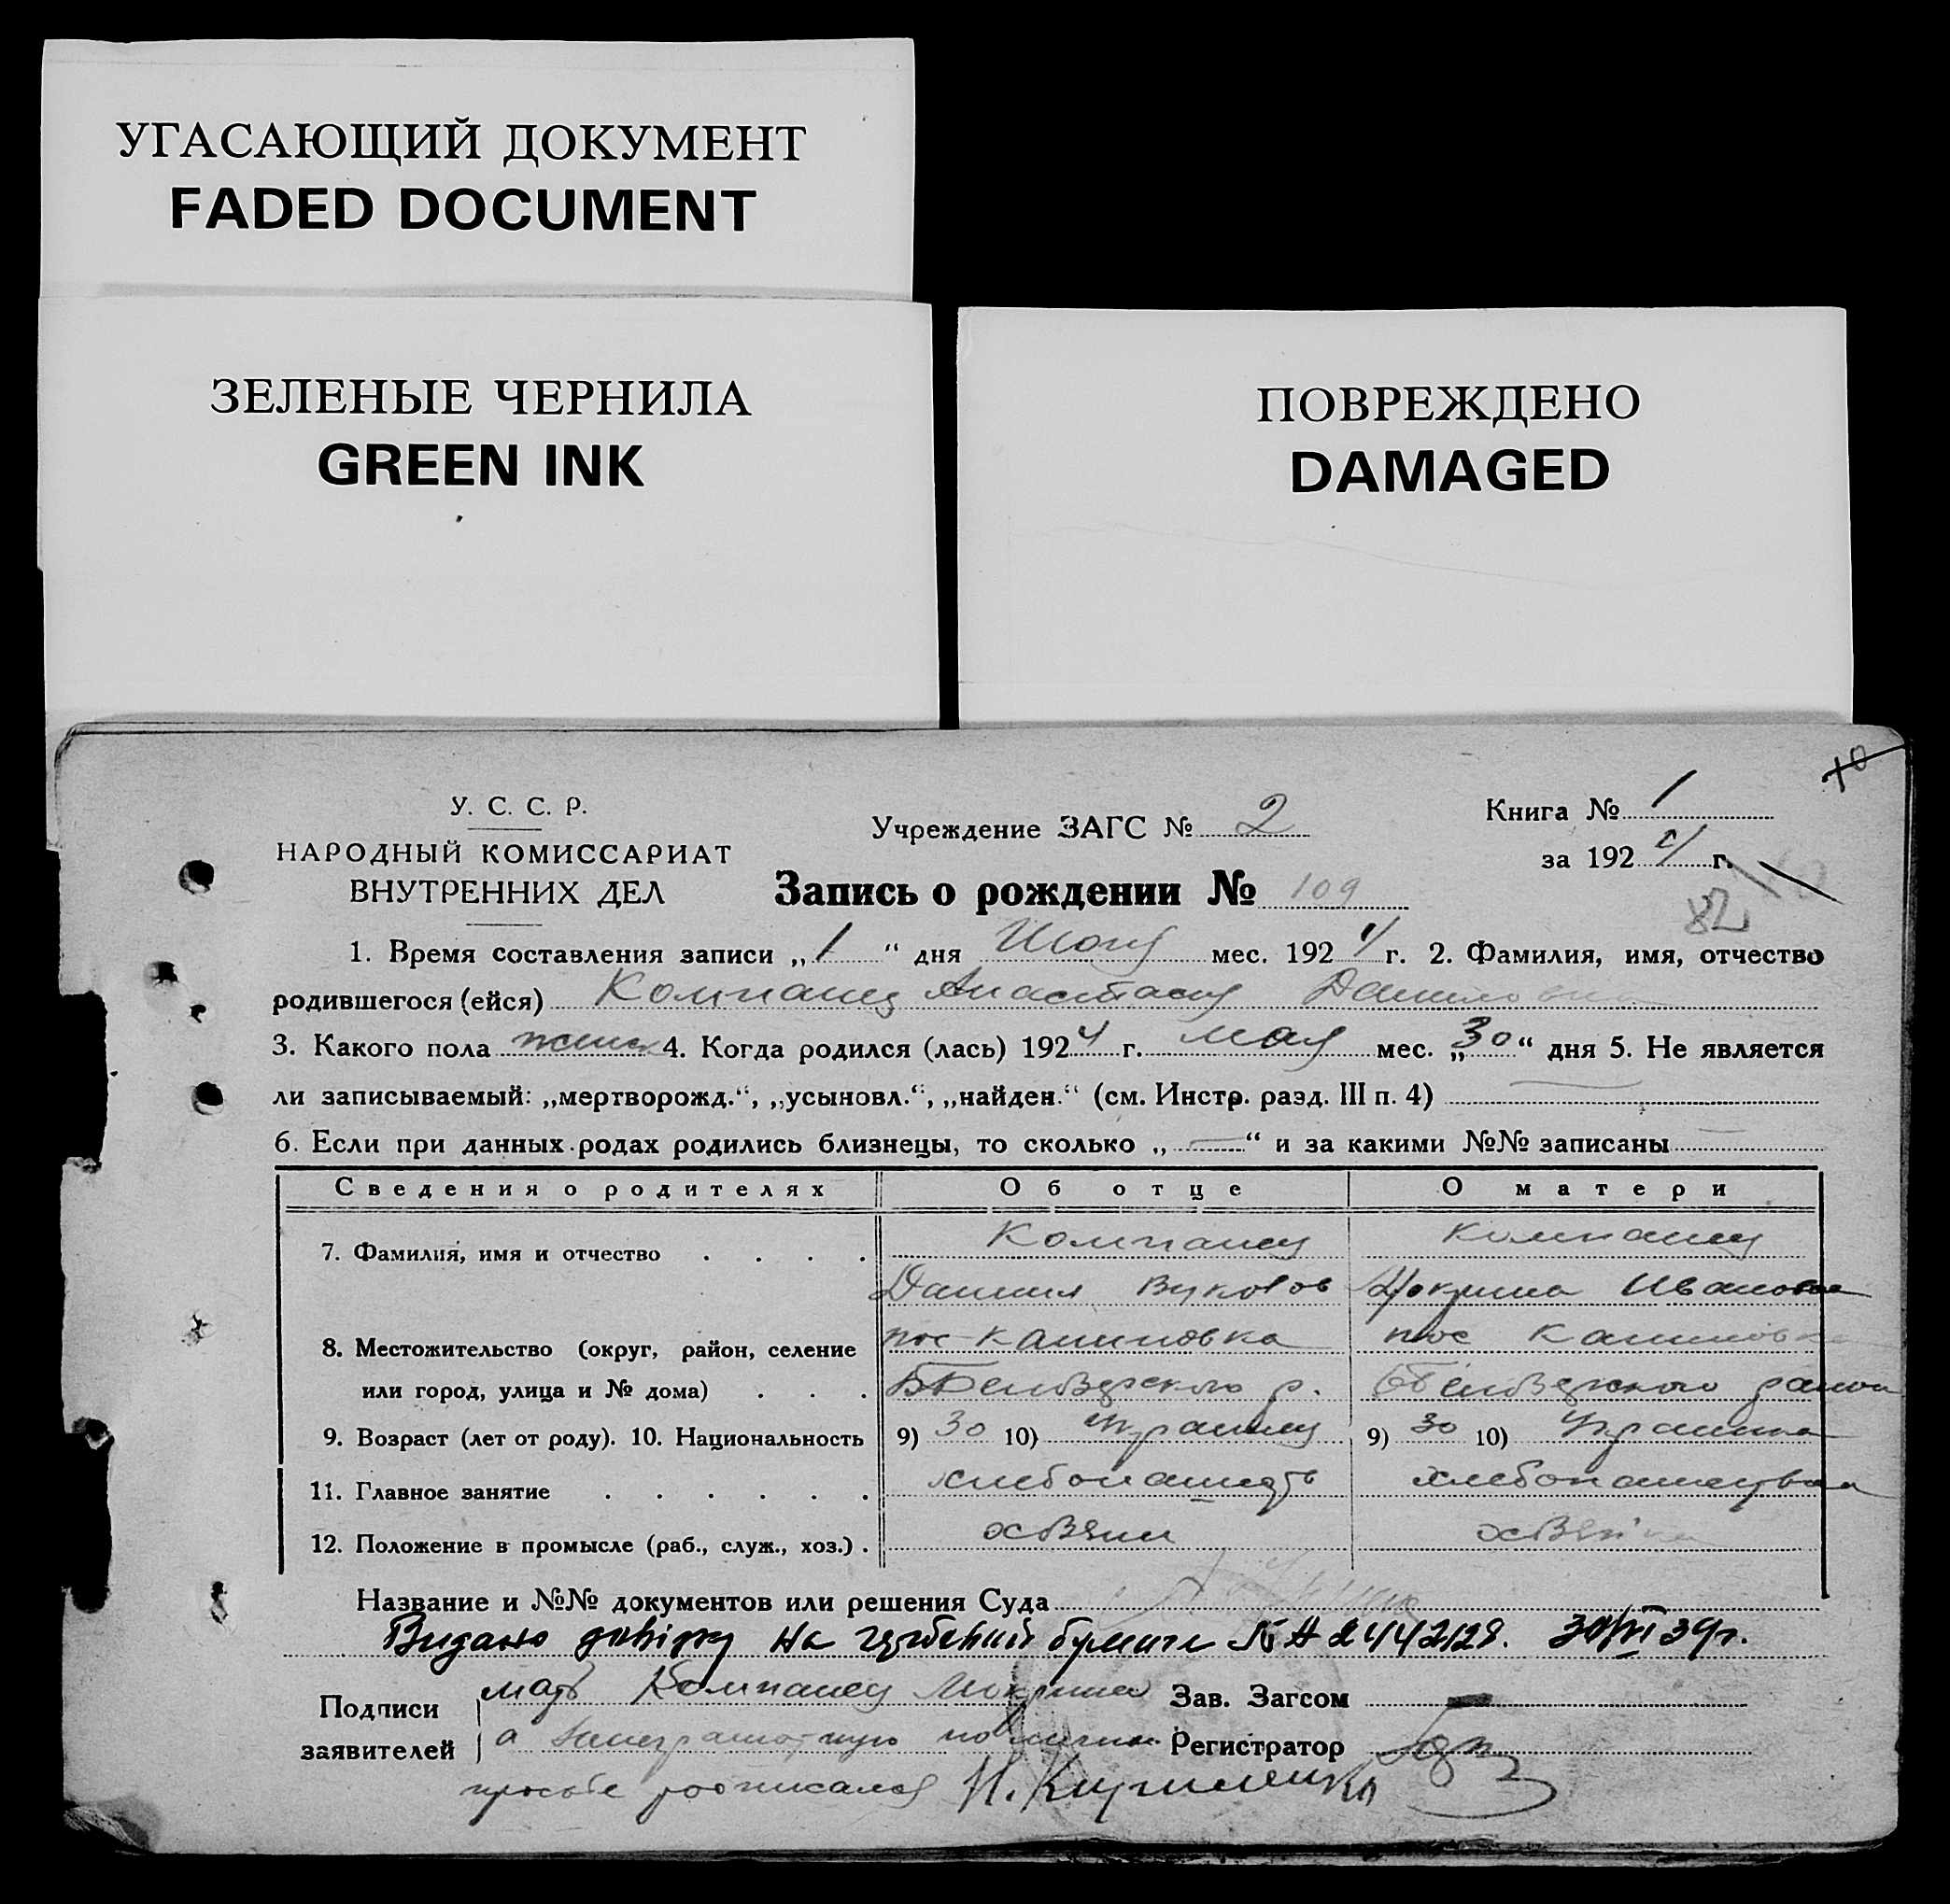 УГАСАЮЩИЙ ДОКУМЕНТ
FADED DOCUMENT
ЗЕЛЕНЫЕ ЧЕРНИЛА
GREEN INK
ПОВРЕЖДЕНО
DAMAGED
10
У. С. С. Р.
НАРОДНЫЙ КОМИССАРИАТ
ВНУТРЕННИХ ДЕЛ
Учреждение ЗАГС № 2
Книга № 1
за 1924 г.
Запись о рождении № 109
82
1. Время составления записи „1“ дня Июня мес. 1924 г. 2. Фамилия, имя, отчество
родившегося (ейся) Компанец Анастасия Даниловна
3. Какого пола женск 4. Когда родился (лась) 1924 г. мая мес. „30“ дня 5. Не является
ли записываемый: „мертворожд.“, „усыновл.“, „найден.“ (см. Инстр. разд. III п. 4)
6. Если при данных родах родились близнецы, то сколько „—“ и за какими №№ записаны —
Сведения о родителях Об отце О матери
7. Фамилия, имя и отчество . . . . Компанец Компанец
Даниил Мокрина Ивановна
8. Местожительство (округ, район, селение пос Калиновка пос Калиновка
или город, улица и № дома) . . . р. район
9. Возраст (лет от роду). 10. Национальность 9) 30 10) Украинец 9) 30 10) Украинка
11. Главное занятие . . . . . . хлебопашец
12. Положение в промысле (раб., служ., хоз.) . хозяин хозяйка
Название и №№ документов или решения Суда
Видано довідку на гербовий бумаги № А 2442128. 30/VI 39г.
Подписи
заявителей
мать Компанец Мокрина
а неграмотную по личной
просьбе росписался Н. Кириленко
Зав. Загсом
Регистратор